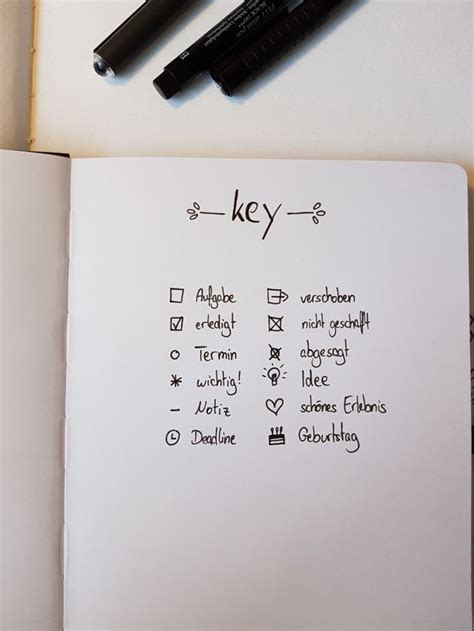 key
Aufgabe
erledigt
Termin
wichtig!
Notiz
Deadline
verschoben
nicht geschafft
abgesagt
Idee
schönes Erlebnis
Geburtstag